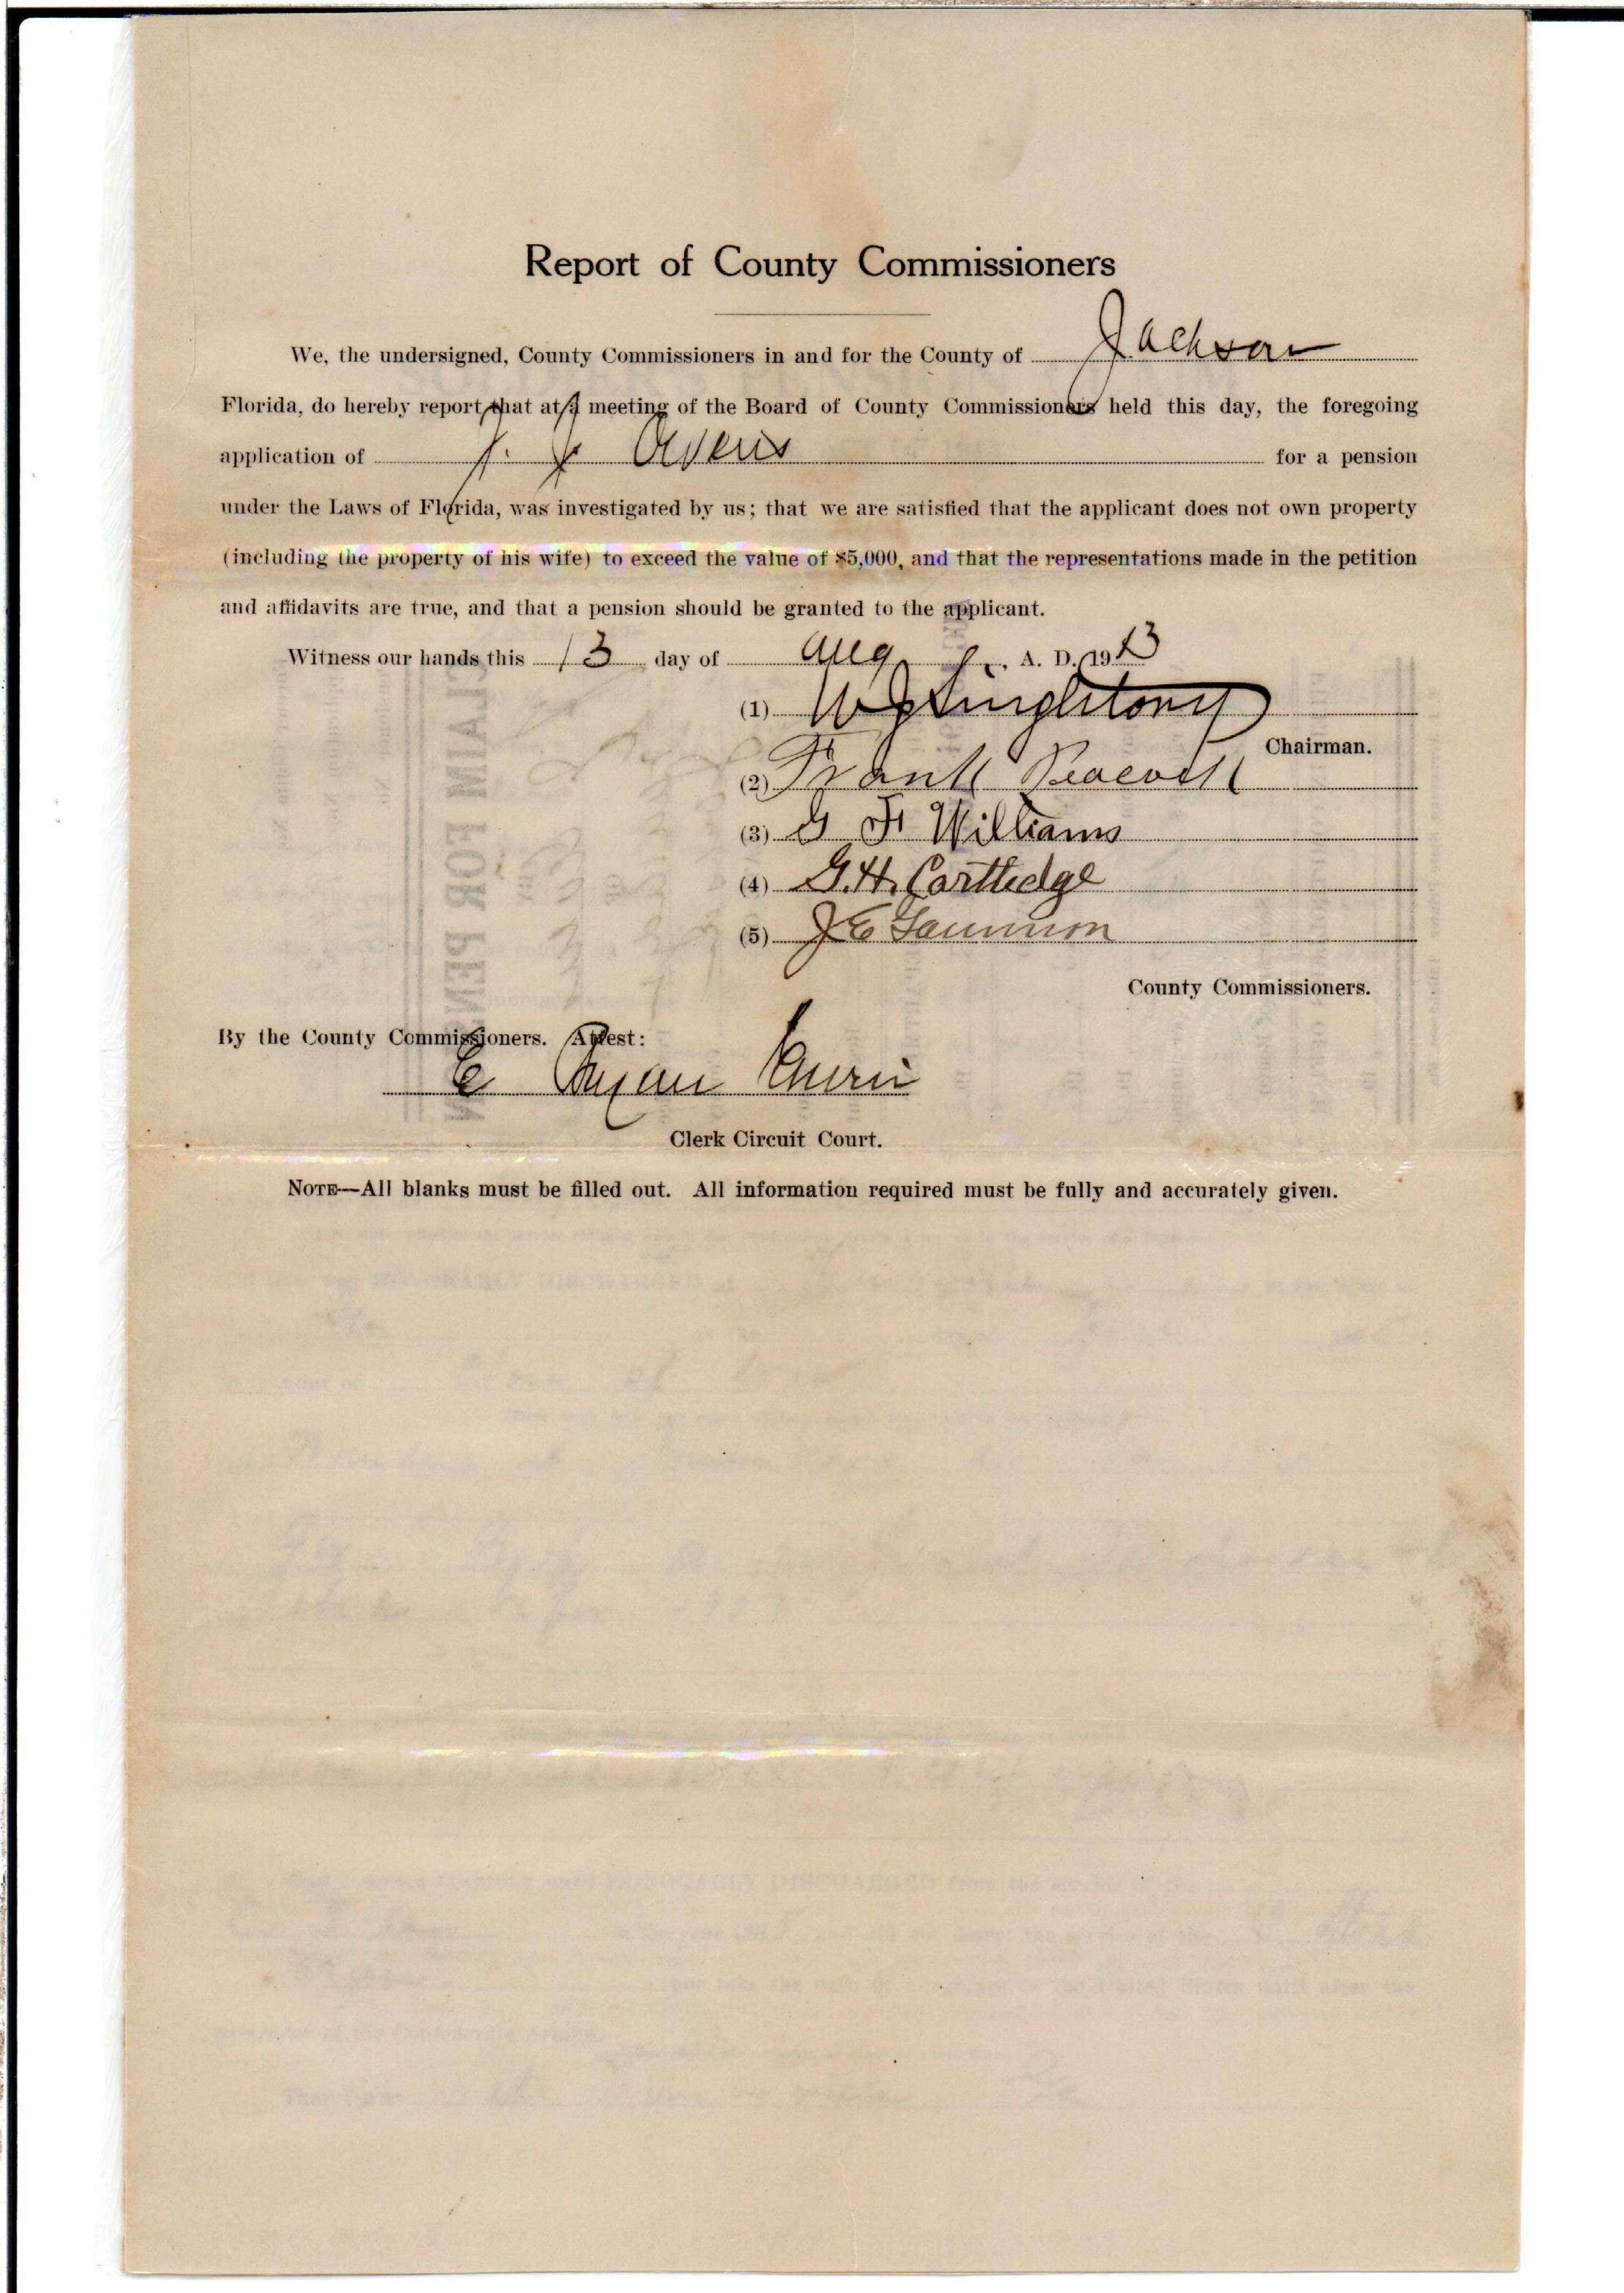 Report of County Commissioners
We, the undersigned, County Commissioners in and for the County of Jackson
Florida, do hereby report that at a meeting of the Board of County Commissioners held this day, the foregoing
application of J. J. Owens for a pension
under the Laws of Florida, was investigated by us; that we are satisfied that the applicant does not own property
(including the property of his wife) to exceed the value of $5,000, and that the representations made in the petition
and affidavits are true, and that a pension should be granted to the applicant.
Witness our hands this 13 day of Aug, A. D. 1913
(1) W J Singletary
Chairman.
(2) Frank Peacock
(3) G F Williams
(4) G. H. Cartledge
(5) J E
County Commissioners.
By the County Commissioners. Attest:
Clerk Circuit Court.
NOTE—All blanks must be filled out. All information required must be fully and accurately given.